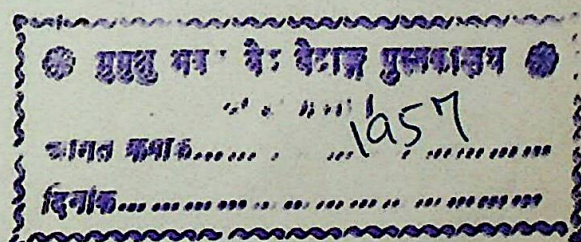 ❁ मुमुक्षु भव वेद वेदाङ्ग पुस्तकालय ❁
आगत क्रमांक............1957............
दिनांक........................